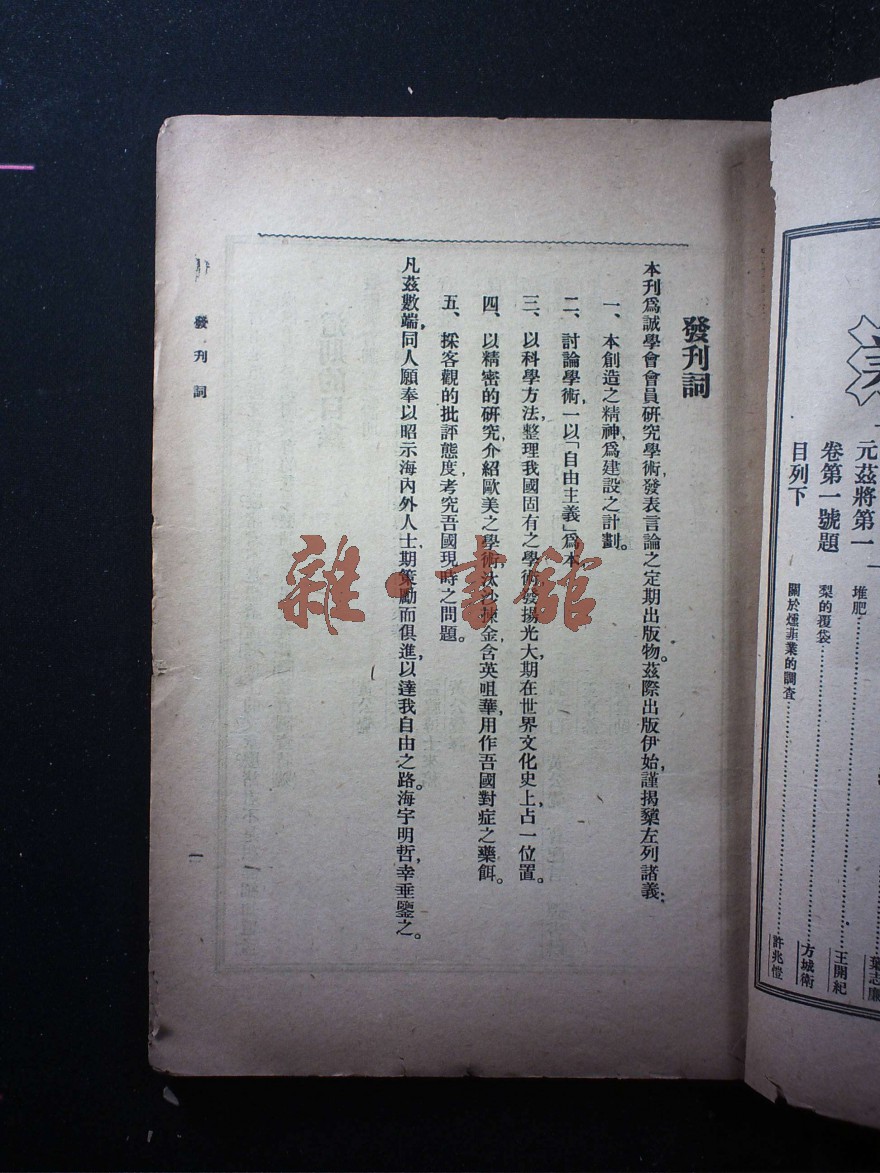 發刊詞
本刊爲誠學會會員研究學術,發表言論之定期出版物。茲際出版伊始,謹揭櫫左列諸義:
一、本創造之精神,爲建設之計劃。
二、討論學術,一以「自由主義」爲本,
三、以科學方法,整理我國固有之學術,發揚光大,期在世界文化史上,占一位置。
四、以精密的研究,介紹歐美之學術,汰沙揀金,含英咀華,用作吾國對症之藥餌。
五、採客觀的批評態度,考究吾國現時之問題。
凡茲數端,同人願奉以昭示海內外人士,期策勵而俱進,以達我自由之路。海宇明哲,幸垂鑒之。
發刊詞
一
雜·書館
元茲將第一
卷第一號題
目列下
堆肥
葉志廉
梨的覆袋 王開紀
方城衛
關於燻韮業的調查 許兆愷